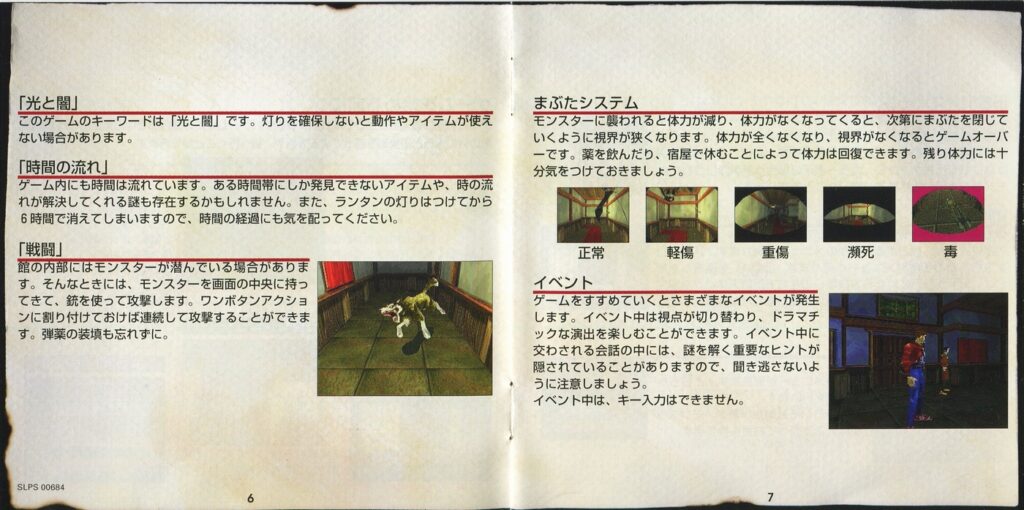 「光と闇」
このゲームのキーワードは「光と闇」です。灯りを確保しないと動作やアイテムが使え
ない場合があります。
「時間の流れ」
ゲーム内にも時間は流れています。ある時間帯にしか発見できないアイテムや、時の流
れが解決してくれる謎も存在するかもしれません。また、ランタンの灯りはつけてから
6時間で消えてしまいますので、時間の経過にも気を配ってください。
「戦闘」
館の内部にはモンスターが潜んでいる場合がありま
す。そんなときには、モンスターを画面の中央に持っ
てきて、銃を使って攻撃します。ワンボタンアクショ
ンに割り付けておけば連続して攻撃することができま
す。弾薬の装填も忘れずに。
SLPS 00684
6
まぶたシステム
モンスターに襲われると体力が減り、体力がなくなってくると、次第にまぶたを閉じて
いくように視界が狭くなります。体力が全くなくなり、視界がなくなるとゲームオーバ
ーです。薬を飲んだり、宿屋で休むことによって体力は回復できます。残り体力には十
分気をつけておきましょう。
正常
軽傷
重傷
瀕死
毒
イベント
ゲームをすすめていくとさまざまなイベントが発生
します。イベント中は視点が切り替わり、ドラマチ
ックな演出を楽しむことができます。イベント中に
交わされる会話の中には、謎を解く重要なヒントが
隠されていることがありますので、聞き逃さないよ
うに注意しましょう。
イベント中は、キー入力はできません。
7